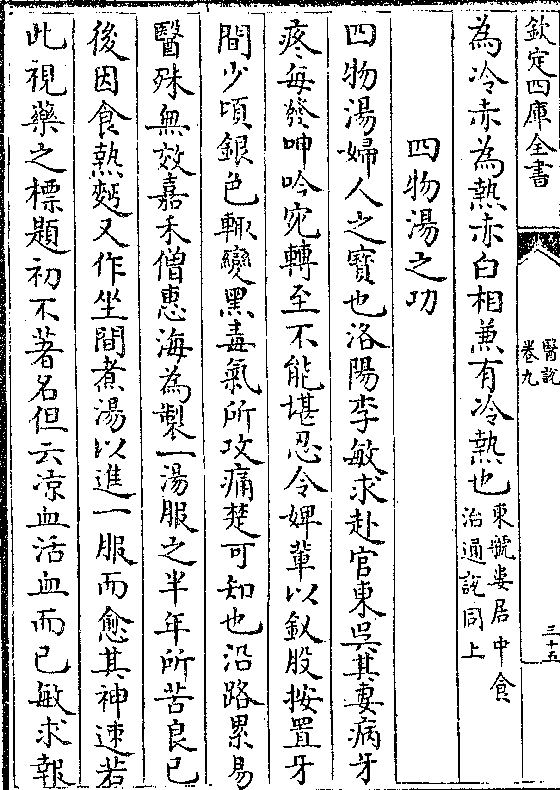 欽定四庫全書
醫說
卷九
三十五
為冷赤為熱赤白相兼有冷熱也
東虢婁居中食
治通說同上
四物湯之功
四物湯婦人之寶也洛陽李敏求赴官東吳其妻病牙
疼每發呻吟宛轉至不能堪忍令婢輩以釵股按置牙
間少頃銀色輒變黑毒氣所攻痛楚可知也沿路累易
醫殊無效嘉禾僧惠海為製一湯服之半年所苦良已
後因食熱麪又作坐間煮湯以進一服而愈其神速若
此視藥之標題初不著名但云凉血活血而已敏求報